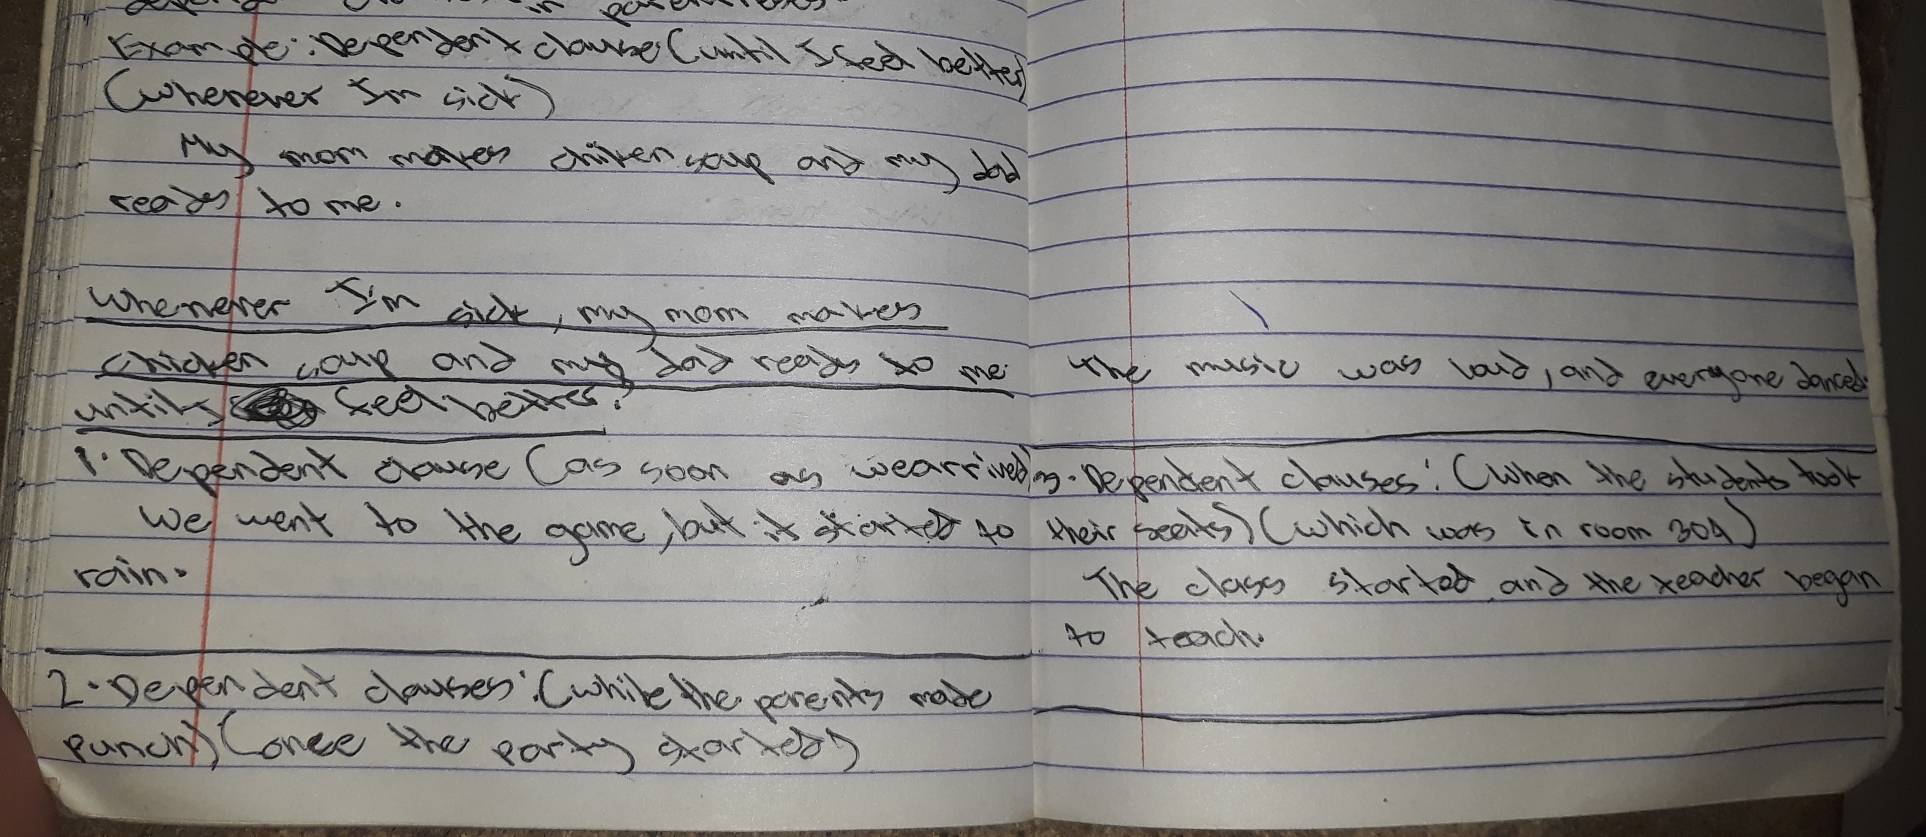 in parentheses.
Example: Dependent clause (until I feel better)
(whenever I'm sick)
My mom makes chiken soup and my dad
reads to me.
Whenever I'm sick, my mom makes
chicken soup and my dad reads to me
until I feel better.
1. Dependent clause (as soon as we arrived)
We went to the game, but it started to
rain.
2. Dependent clauses: (while the parents made
punch) (once the party started)
The music was loud, and everyone danced.
3. Dependent clauses: (When the students took
their seats) (which was in room 304)
The class started and the teacher began
to teach.